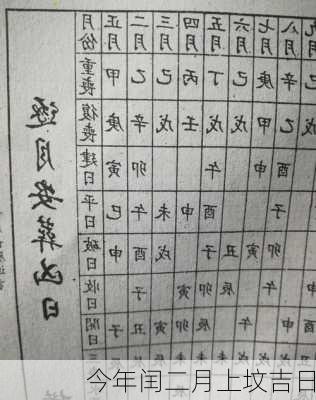 逐月安葬凶日
月份 正月 二月 三月 四月 五月 六月 七月 八月 九月
重喪 甲 乙 己 丙 丁 己 庚 辛 己
復喪 庚 辛 戊 壬 戊 戊 甲 乙 戊
建日 寅 卯 午 申 酉
平日 巳 午 未 酉 子
破日 申 酉 戌 子 丑 寅 卯
收日 子 寅 卯 辰 午
開日 子 丑 寅 卯 辰 午 未
今年闰二月上坟吉日